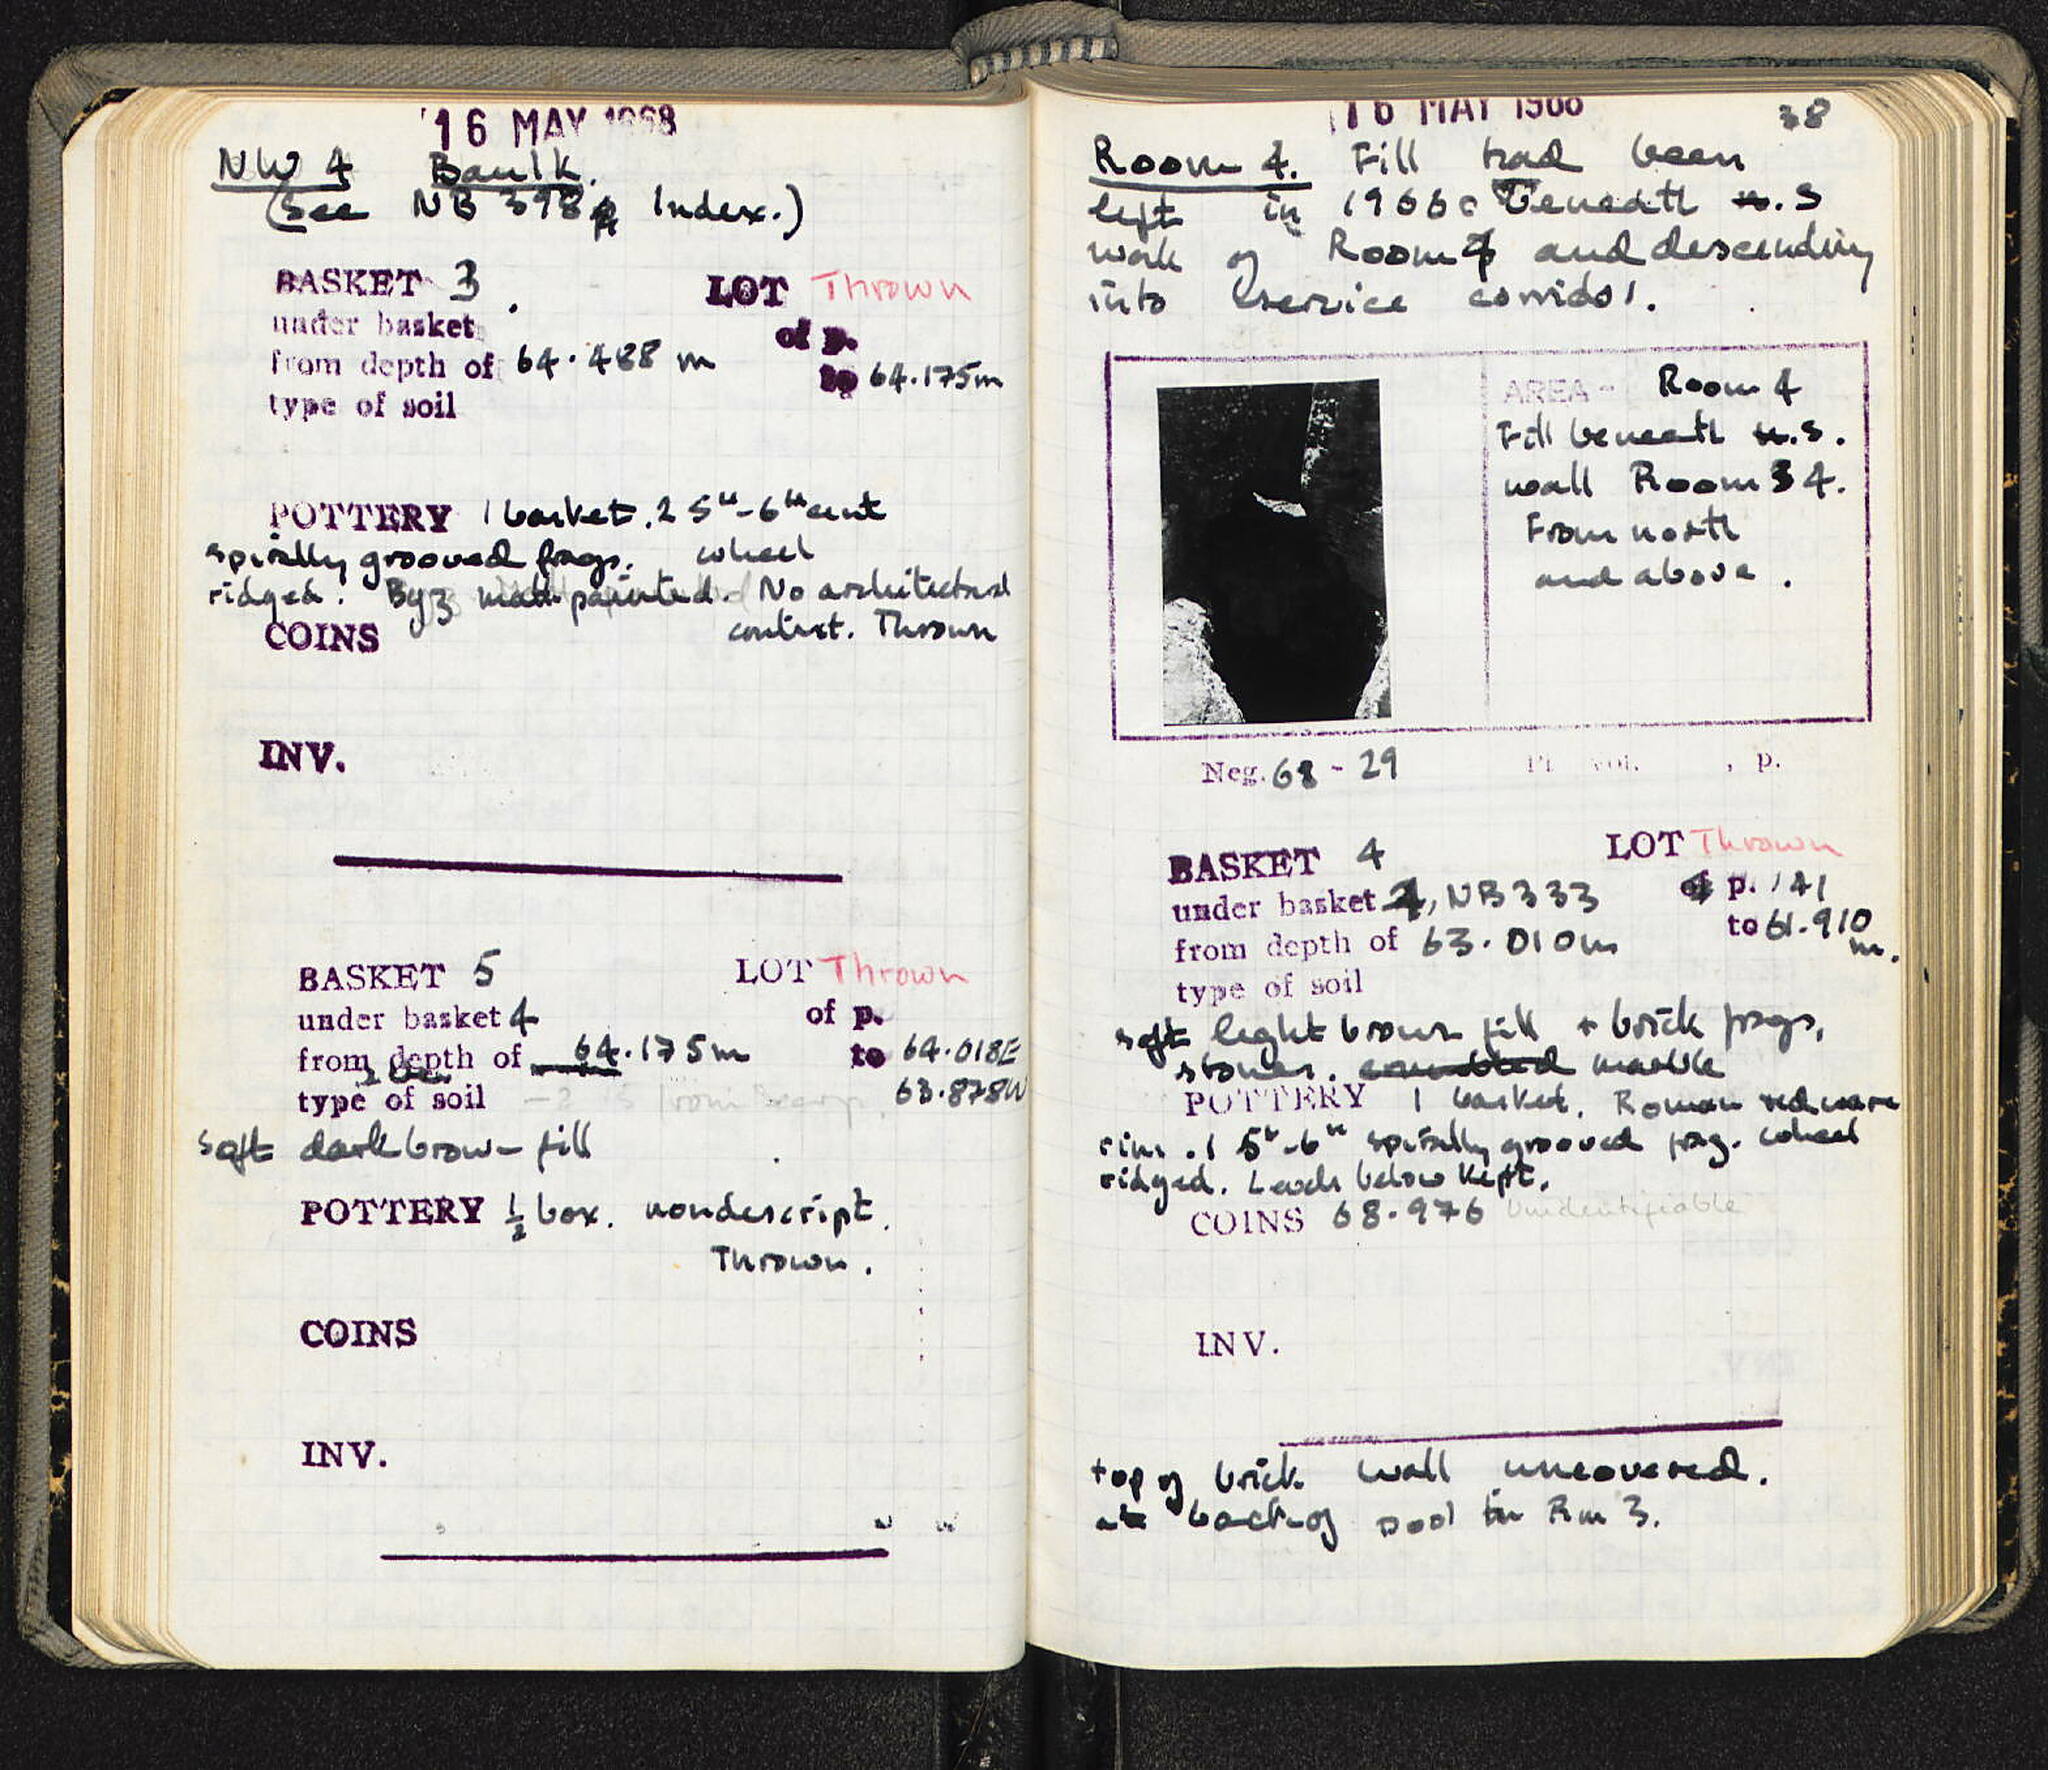 16 MAY 1968
NW 4 Baulk.
(See NB 398 Index.)
BASKET 3. LOT Thrown
under basket of p.
from depth of 64.488 m to 64.175m
type of soil
POTTERY 1 basket. 2 5th-6th cent
spirally grooved frags. wheel
ridged. Byz matt painted. No architectural
COINS context. Thrown
INV.
BASKET 5 LOT Thrown
under basket 4 of p.
from depth of 64.175m to 64.018E
type of soil 63.878W
soft dark brown fill
POTTERY ½ box. nondescript.
Thrown.
COINS
INV.
16 MAY 1968 38
Room 4. Fill had been
left in 1966 beneath n.S
wall of Room 4 and descending
into service corridor.
AREA - Room 4
Fill beneath n.s.
wall Room 3 4.
From north
and above.
Neg. 68 - 29 Pl vol. , p.
BASKET 4 LOT Thrown
under basket 4, NB 333 of p. 141
from depth of 63.010m to 61.910 m.
type of soil
soft light brown fill + brick frags,
stones. marble
POTTERY 1 basket. Roman red ware
rim. 1 5th-6th spirally grooved frag. wheel
ridged. Levels below kept.
COINS 68.976 Unidentifiable
INV.
top of brick wall uncovered.
at back of pool in Rm 3.